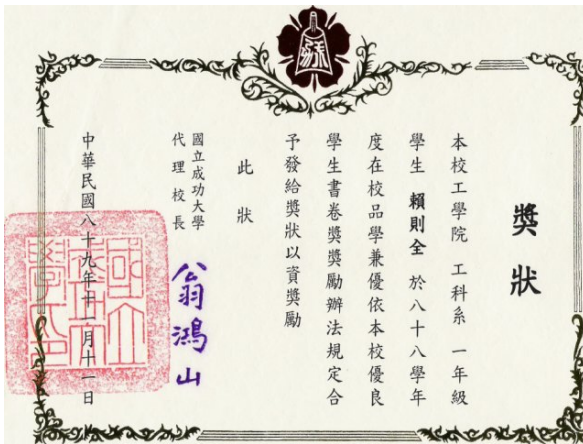 獎狀
本校工學院 工科系 一年級
學生 賴則全 於八十八學年
度在校品學兼優依本校優良
學生書卷獎獎勵辦法規定合
予發給獎狀以資獎勵
此狀
國立成功大學
代理校長
翁鴻山
中華民國八十九年十一月十一日